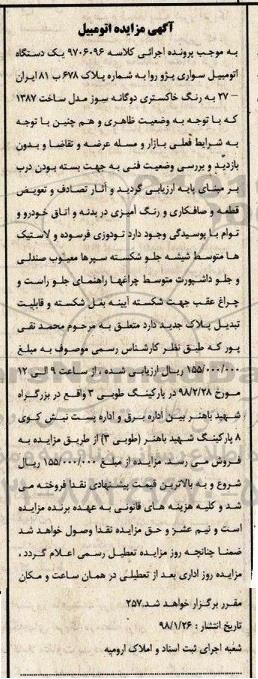 آگهی مزایده اتومبیل
به موجب پرونده اجرائی کلاسه ۹۷۰۶۰۹۶ یک دستگاه
اتومبیل سواری پژو روا به شماره پلاک ۶۷۸ ب ۸۱ ایران
– ۲۷ به رنگ خاکستری دوگانه سوز مدل ساخت ۱۳۸۷
که با توجه به وضعیت ظاهری و هم چنین با توجه
به شرایط فعلی بازار و مسله عرضه و تقاضا و بدون
بازدید و بررسی وضعیت فنی به جهت بسته بودن درب
بر مبنای پایه ارزیابی گردید و آثار تصادف و تعویض
قطعه و صافکاری و رنگ آمیزی در بدنه و اتاق خودرو و
توام با پوسیدگی وجود دارد تودوزی فرسوده و لاستیک
ها متوسط شیشه جلو شکسته سپرها معیوب صندلی
و جلو داشپورت متوسط چراغها راهنمای جلو راست و
چراغ عقب جهت شکسته آیینه بغل شکسته و قابلیت
تبدیل پلاک جدید دارد متعلق به مرحوم محمد تقی
پور که طبق نظر کارشناس رسمی موصوف به مبلغ
۱۵۵/۰۰۰/۰۰۰ ریال ارزیابی شده ، از ساعت ۹ الی ۱۲
مورخ ۹۸/۲/۲۸ در پارکینگ طوبی ۳ واقع در بزرگراه
شهید باهنر بین اداره برق و اداره پست نبش کوی
۸ پارکینگ شهید باهنر (طوبی ۳) از طریق مزایده به
فروش می رسد. مزایده از مبلغ ۱۵۵/۰۰۰/۰۰۰ ریال
شروع و به بالاترین قیمت پیشنهادی نقدا فروخته می
شد و کلیه هزینه های قانونی به عهده برنده مزایده
است و نیم عشر و حق مزایده نقدا وصول خواهد شد
ضمنا چنانچه روز مزایده تعطیل رسمی اعلام گردد ،
مزایده روز اداری بعد از تعطیلی در همان ساعت و مکان
مقرر برگزار خواهد شد.۲۵۷
تاریخ انتشار : ۹۸/۱/۲۶
شعبه اجرای ثبت اسناد و املاک ارومیه